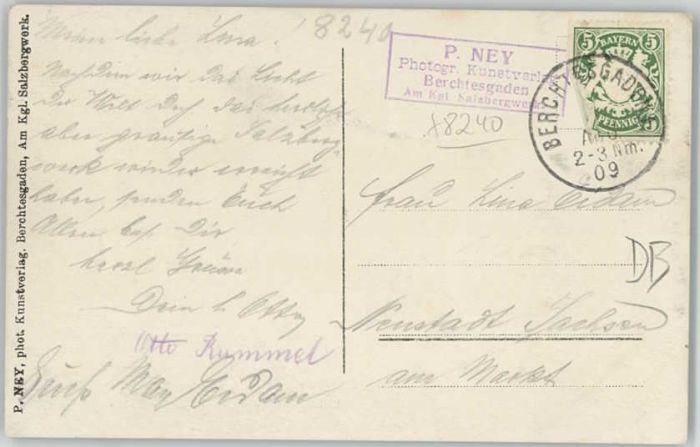 Meine liebe Lina!
Nachdem wir das Licht
der Welt durch das
aber grausige Salzberg
werk wieder erreicht
haben, senden Euch
Allen bes. Dir
herzl. Grüsse
Dein l. Otto
Otto Rummel
Gruß Max Eidam
8240
P. NEY
Photogr. Kunstverlag
Berchtesgaden
Am Kgl. Salzbergwerk
8240
5 BAYERN 5
5 PFENNIG 5
BERCHTESGADEN
2-3 Nm.
09
Frau Lina Eidam
DB
Neustadt Sachsen
am Markt
P. NEY, phot. Kunstverlag. Berchtesgaden, Am Kgl. Salzbergwerk.